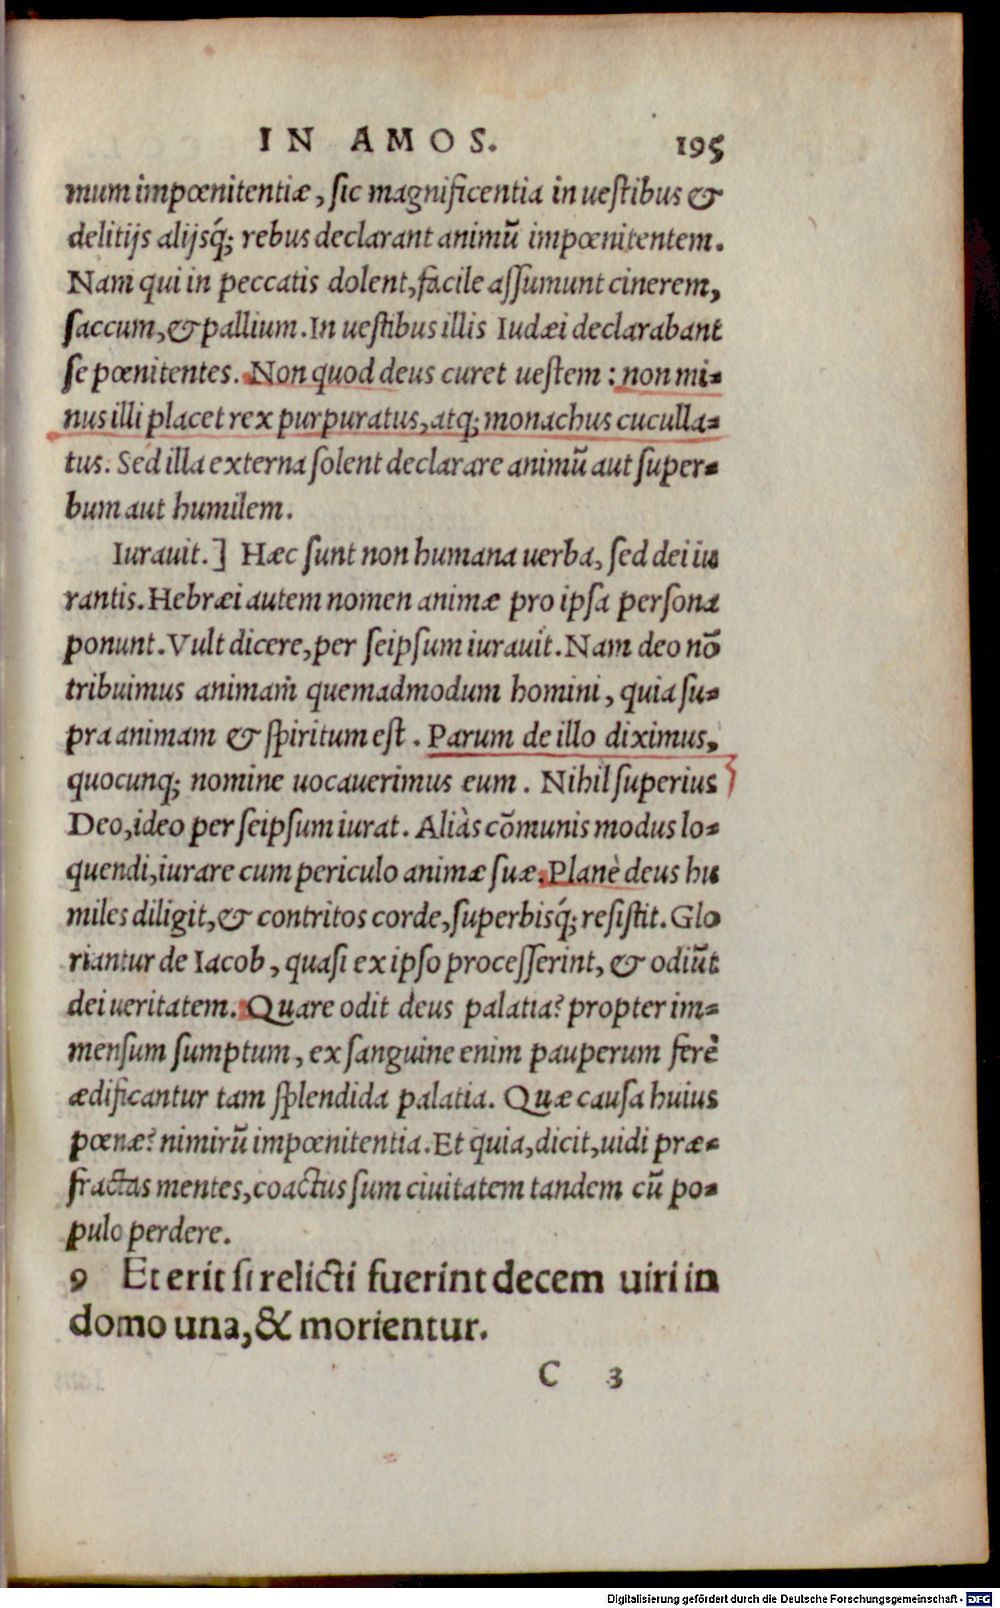 IN AMOS. 195
mum impœnitentiæ, sic magnificentia in uestibus &
delitijs alijsq́; rebus declarant animũ impœnitentem.
Nam qui in peccatis dolent, facile assumunt cinerem,
saccum, & pallium. In uestibus illis Iudæi declarabant
se pœnitentes. Non quod deus curet uestem: non mi-
nus illi placet rex purpuratus, atq; monachus cuculla-
tus. Sed illa externa solent declarare animũ aut super-
bum aut humilem.
Iurauit.] Hæc sunt non humana uerba, sed dei iu
rantis. Hebræi autem nomen animæ pro ipsa persona
ponunt. Vult dicere, per seipsum iurauit. Nam deo nõ
tribuimus animam quemadmodum homini, quia su-
pra animam & spiritum est. Parum de illo diximus,
quocunq; nomine uocauerimus eum. Nihil superius
Deo, ideo per seipsum iurat. Aliàs cõmunis modus lo-
quendi, iurare cum periculo animæ suæ. Planè deus hu
miles diligit, & contritos corde, superbisq́; resistit. Glo
riantur de Iacob, quasi ex ipso processerint, & odiũt
dei ueritatem. Quare odit deus palatia? propter im-
mensum sumptum, ex sanguine enim pauperum ferè
ædificantur tam splendida palatia. Quæ causa huius
pœnæ? nimirũ impœnitentia. Et quia, dicit, uidi præ-
fractas mentes, coactus sum ciuitatem tandem cũ po-
pulo perdere.
9 Et erit si relicti fuerint decem uiri in
domo una, & morientur.
C 3
Digitalisierung gefördert durch die Deutsche Forschungsgemeinschaft - DFG